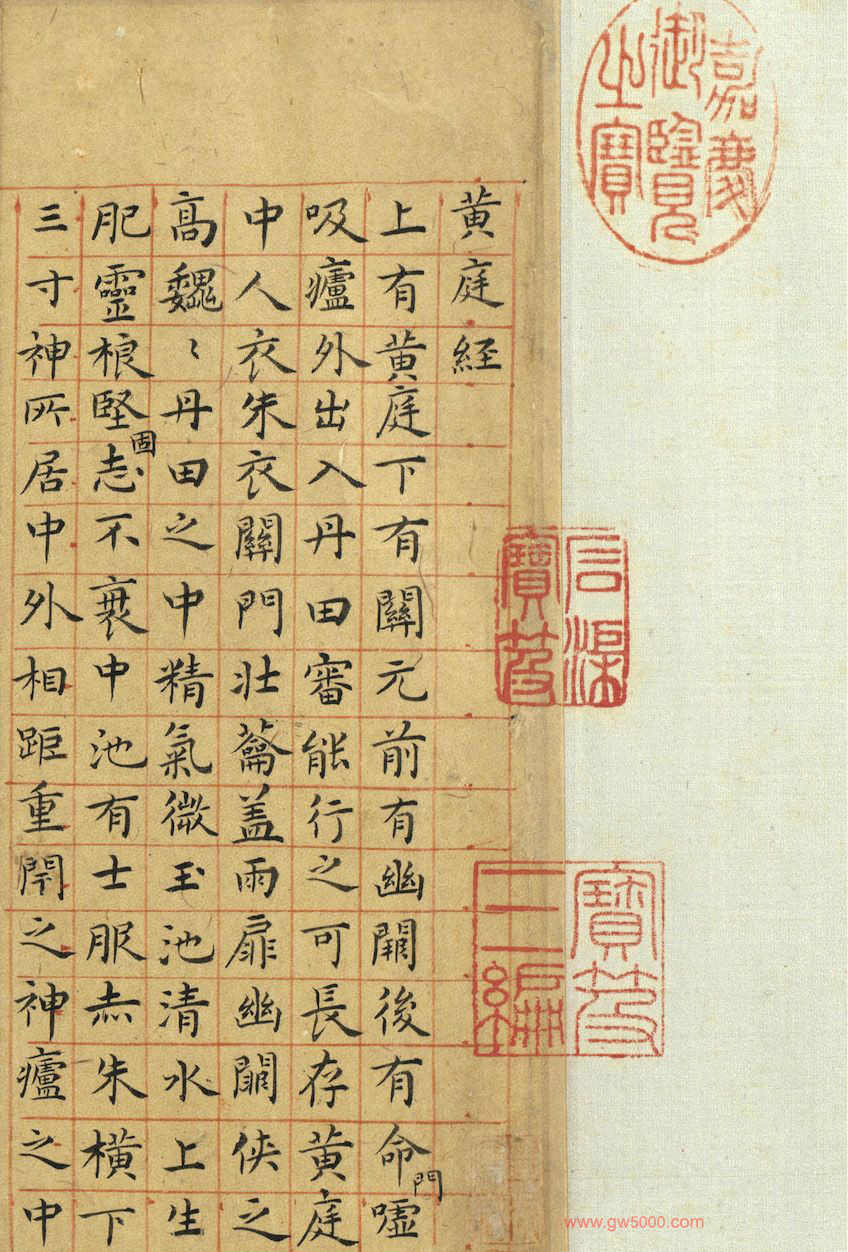 嘉慶
御覽
之寶
石渠
寶笈
寶笈
三編
黄庭経
上有黄庭下有關元前有幽闕後有命門噓
吸廬外出入丹田審能行之可長存黄庭
中人衣朱衣關門壯蘥盖兩扉幽闕俠之
高魏〻丹田之中精氣微玉池清水上生
肥靈根堅固志不衰中池有士服赤朱横下
三寸神所居中外相距重閇之神廬之中
www.gw5000.com